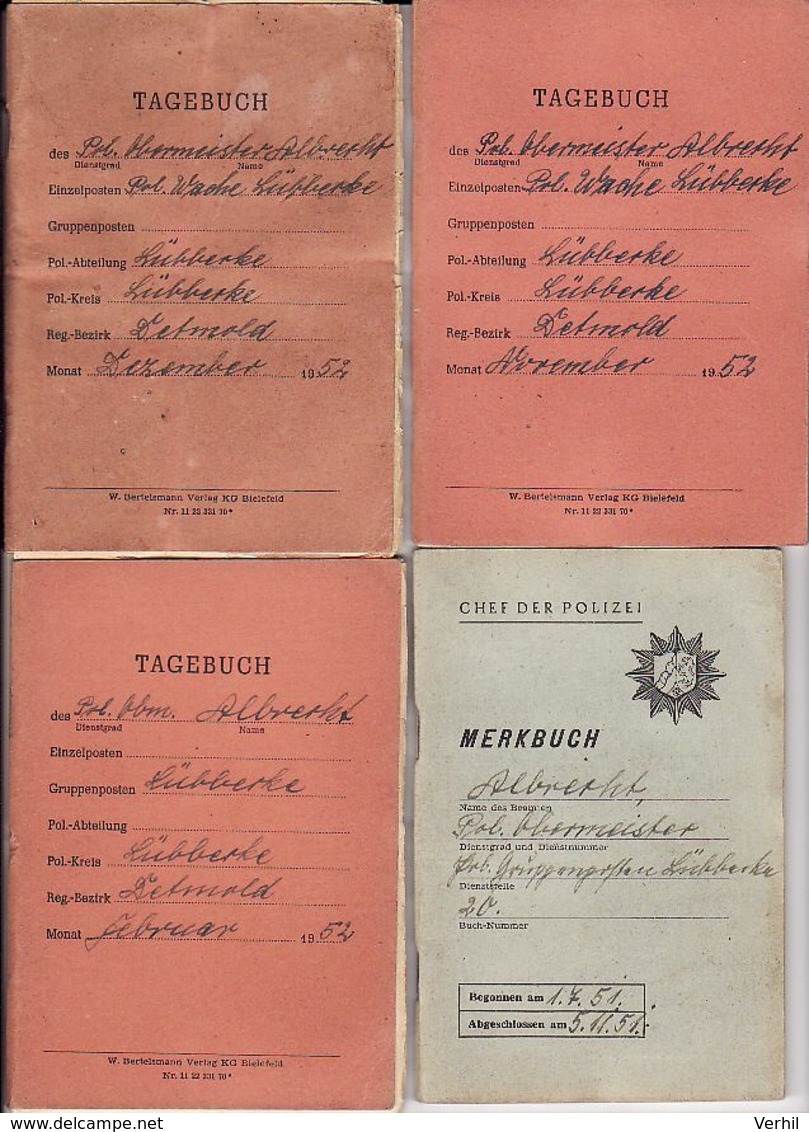 TAGEBUCH
des Pol. Obermeister Albrecht
Dienstgrad Name
Einzelposten Pol. Wache Lübbecke
Gruppenposten
Pol.-Abteilung Lübbecke
Pol.-Kreis Lübbecke
Reg.-Bezirk Detmold
Monat Dezember 1952
W. Bertelsmann Verlag KG Bielefeld
Nr. 11 22 331 70*
TAGEBUCH
des Pol. Obermeister Albrecht
Dienstgrad Name
Einzelposten Pol. Wache Lübbecke
Gruppenposten
Pol.-Abteilung Lübbecke
Pol.-Kreis Lübbecke
Reg.-Bezirk Detmold
Monat November 1952
W. Bertelsmann Verlag KG Bielefeld
Nr. 11 22 331 70*
TAGEBUCH
des Pol. Obm. Albrecht
Dienstgrad Name
Einzelposten
Gruppenposten Lübbecke
Pol.-Abteilung
Pol.-Kreis Lübbecke
Reg.-Bezirk Detmold
Monat Februar 1952
W. Bertelsmann Verlag KG Bielefeld
Nr. 11 22 331 70*
CHEF DER POLIZEI
MERKBUCH
Albrecht,
Name des Beamten
Pol. Obermeister
Dienstgrad und Dienstnummer
Pol. Gruppenposten Lübbecke
Dienststelle
20.
Buch-Nummer
Begonnen am 1.7.51.
Abgeschlossen am 5.11.51.
Verhil